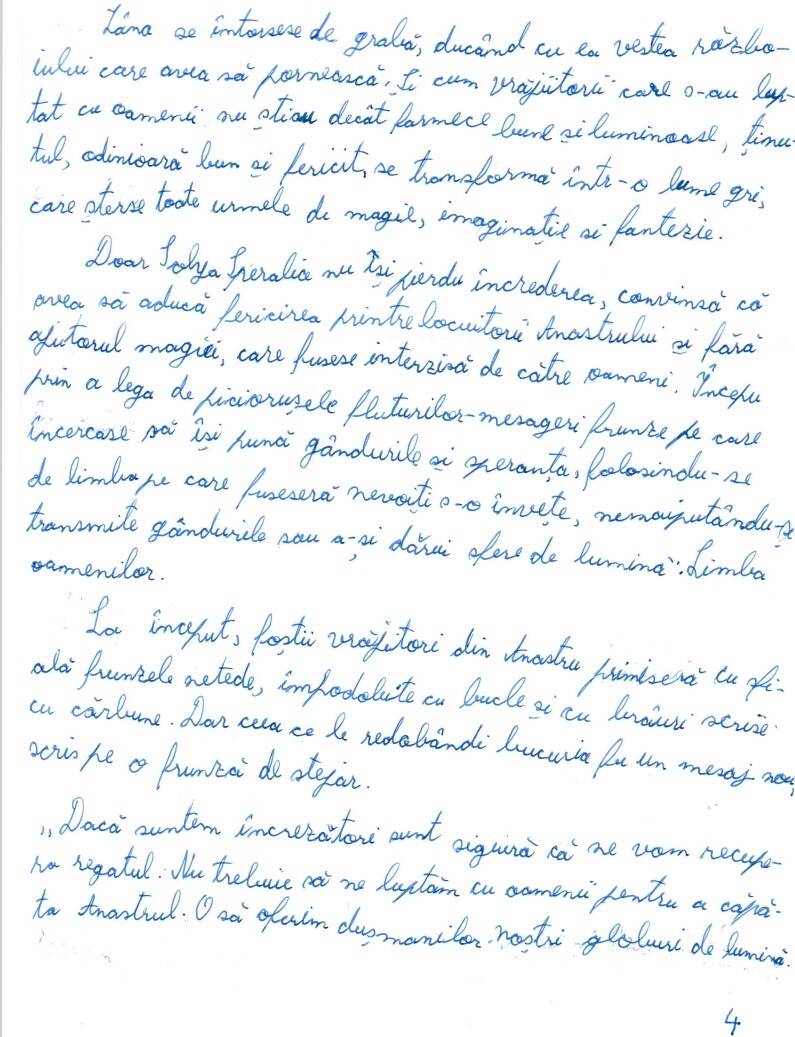 Zâna se întorsese de grabă, ducând cu ea vestea războ-
iului care avea să pornească. Și cum vrăjitorii care s-au lup-
tat cu oamenii nu știau decât farmece bune și luminoase, ținu-
tul, odinioară bun și fericit, se transformă într-o lume gri,
care șterse toate urmele de magie, imaginație si fantezie.
Doar Solya Speralia nu își pierdu încrederea, convinsă că
avea să aducă fericirea printre locuitorii Anastrului și fără
ajutorul magiei, care fusese interzisă de către oameni. Începu
prin a lega de piciorușele fluturilor-mesageri frunze pe care
încercase să își pună gândurile si speranța, folosindu-se
de limba pe care fuseseră nevoiți s-o învețe, nemaiputându-și
transmite gândurile sau a-și dărui sfere de lumină: Limba
oamenilor.
La început, foștii vrăjitori din Anastru primiseră cu sfi-
ală frunzele netede, împodobite cu bucle și cu brâuri scrise
cu cărbune. Dar ceea ce le redobândi bucuria fu un mesaj nou,
scris pe o frunză de stejar.
„Dacă suntem încrezători sunt sigură că ne vom recupe-
ra regatul. Nu trebuie să ne luptăm cu oamenii pentru a căpă-
ta Anastrul. O să oferim dușmanilor noștri globuri de lumină.
4